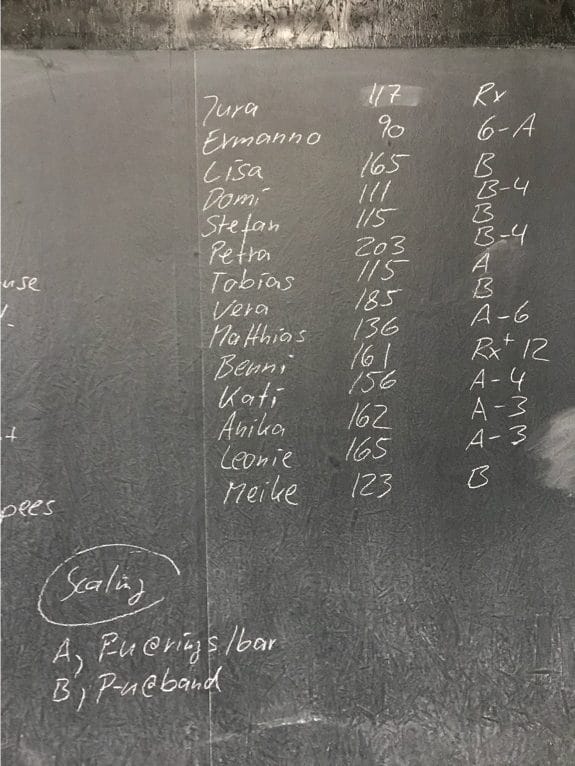 Jura 117 Rx
Ermanno 90 6-A
Lisa 165 B
Domi 111 B-4
Stefan 115 B
Petra 203 B-4
Tobias 115 A
Vera 185 B
Matthias 136 A-6
Benni 161 Rx+ 12
Kati 156 A-4
Anika 162 A-3
Leonie 165 A-3
Meike 123 B
use
pees
Scaling
A, P-u@rings/bar
B, P-u@band